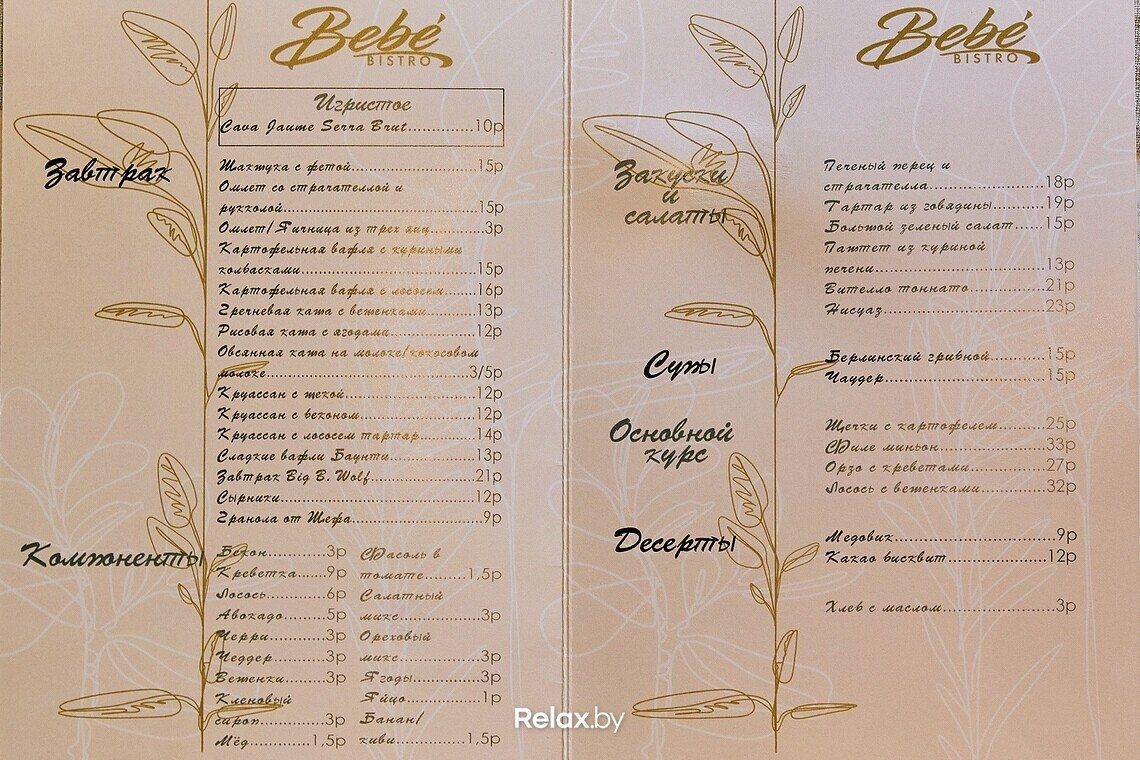 Bebé
BISTRO
Игристое
Cava Jaume Serra Brut..............10р
Завтрак
Шакшука с фетой...........................15р
Омлет со страчателлой и
рукколой..........................................15р
Омлет/Яичница из трех яиц............3р
Картофельная вафля с куриными
колбасками......................................15р
Картофельная вафля с лососем.......16р
Гречневая каша с вешенками...........13р
Рисовая каша с ягодами...................12р
Овсянная каша на молоке/кокосовом
молоке.............................................3/5р
Круассан с пекой............................12р
Круассан с беконом.........................12р
Круассан с лососем тартар............14р
Сладкие вафли Баунти....................13р
Завтрак Big B. Wolf.......................21р
Сырники...........................................12р
Гранола от Шефа............................9р
Компоненты
Бекон............3р
Креветка.......9р
Лосось............6р
Авокадо.........5р
Черри.............3р
Чеддер...........3р
Вешенки........3р
Кленовый
сироп..............3р
Мёд..............1,5р
Фасоль в
томате.........1,5р
Салатный
микс................3р
Ореховый
микс................3р
Ягоды.............3р
Яйцо...............1р
Банан/
киви..............1,5р
Bebé
BISTRO
Закуски
и
салаты
Печеный перец и
страчателла.........................18р
Тартар из говядины...........19р
Большой зеленый салат......15р
Паштет из куриной
печени.....................................13р
Вителло тоннато................21р
Нисуаз...................................23р
Супы
Берлинский грибной............15р
Чаудер....................................15р
Основной
курс
Щечки с картофелем..........25р
Филе миньон........................33р
Орзо с креветами................27р
Лосось с вешенками..............32р
Десерты
Медовик..................................9р
Какао бисквит.....................12р
Хлеб с маслом........................3р
Relax.by